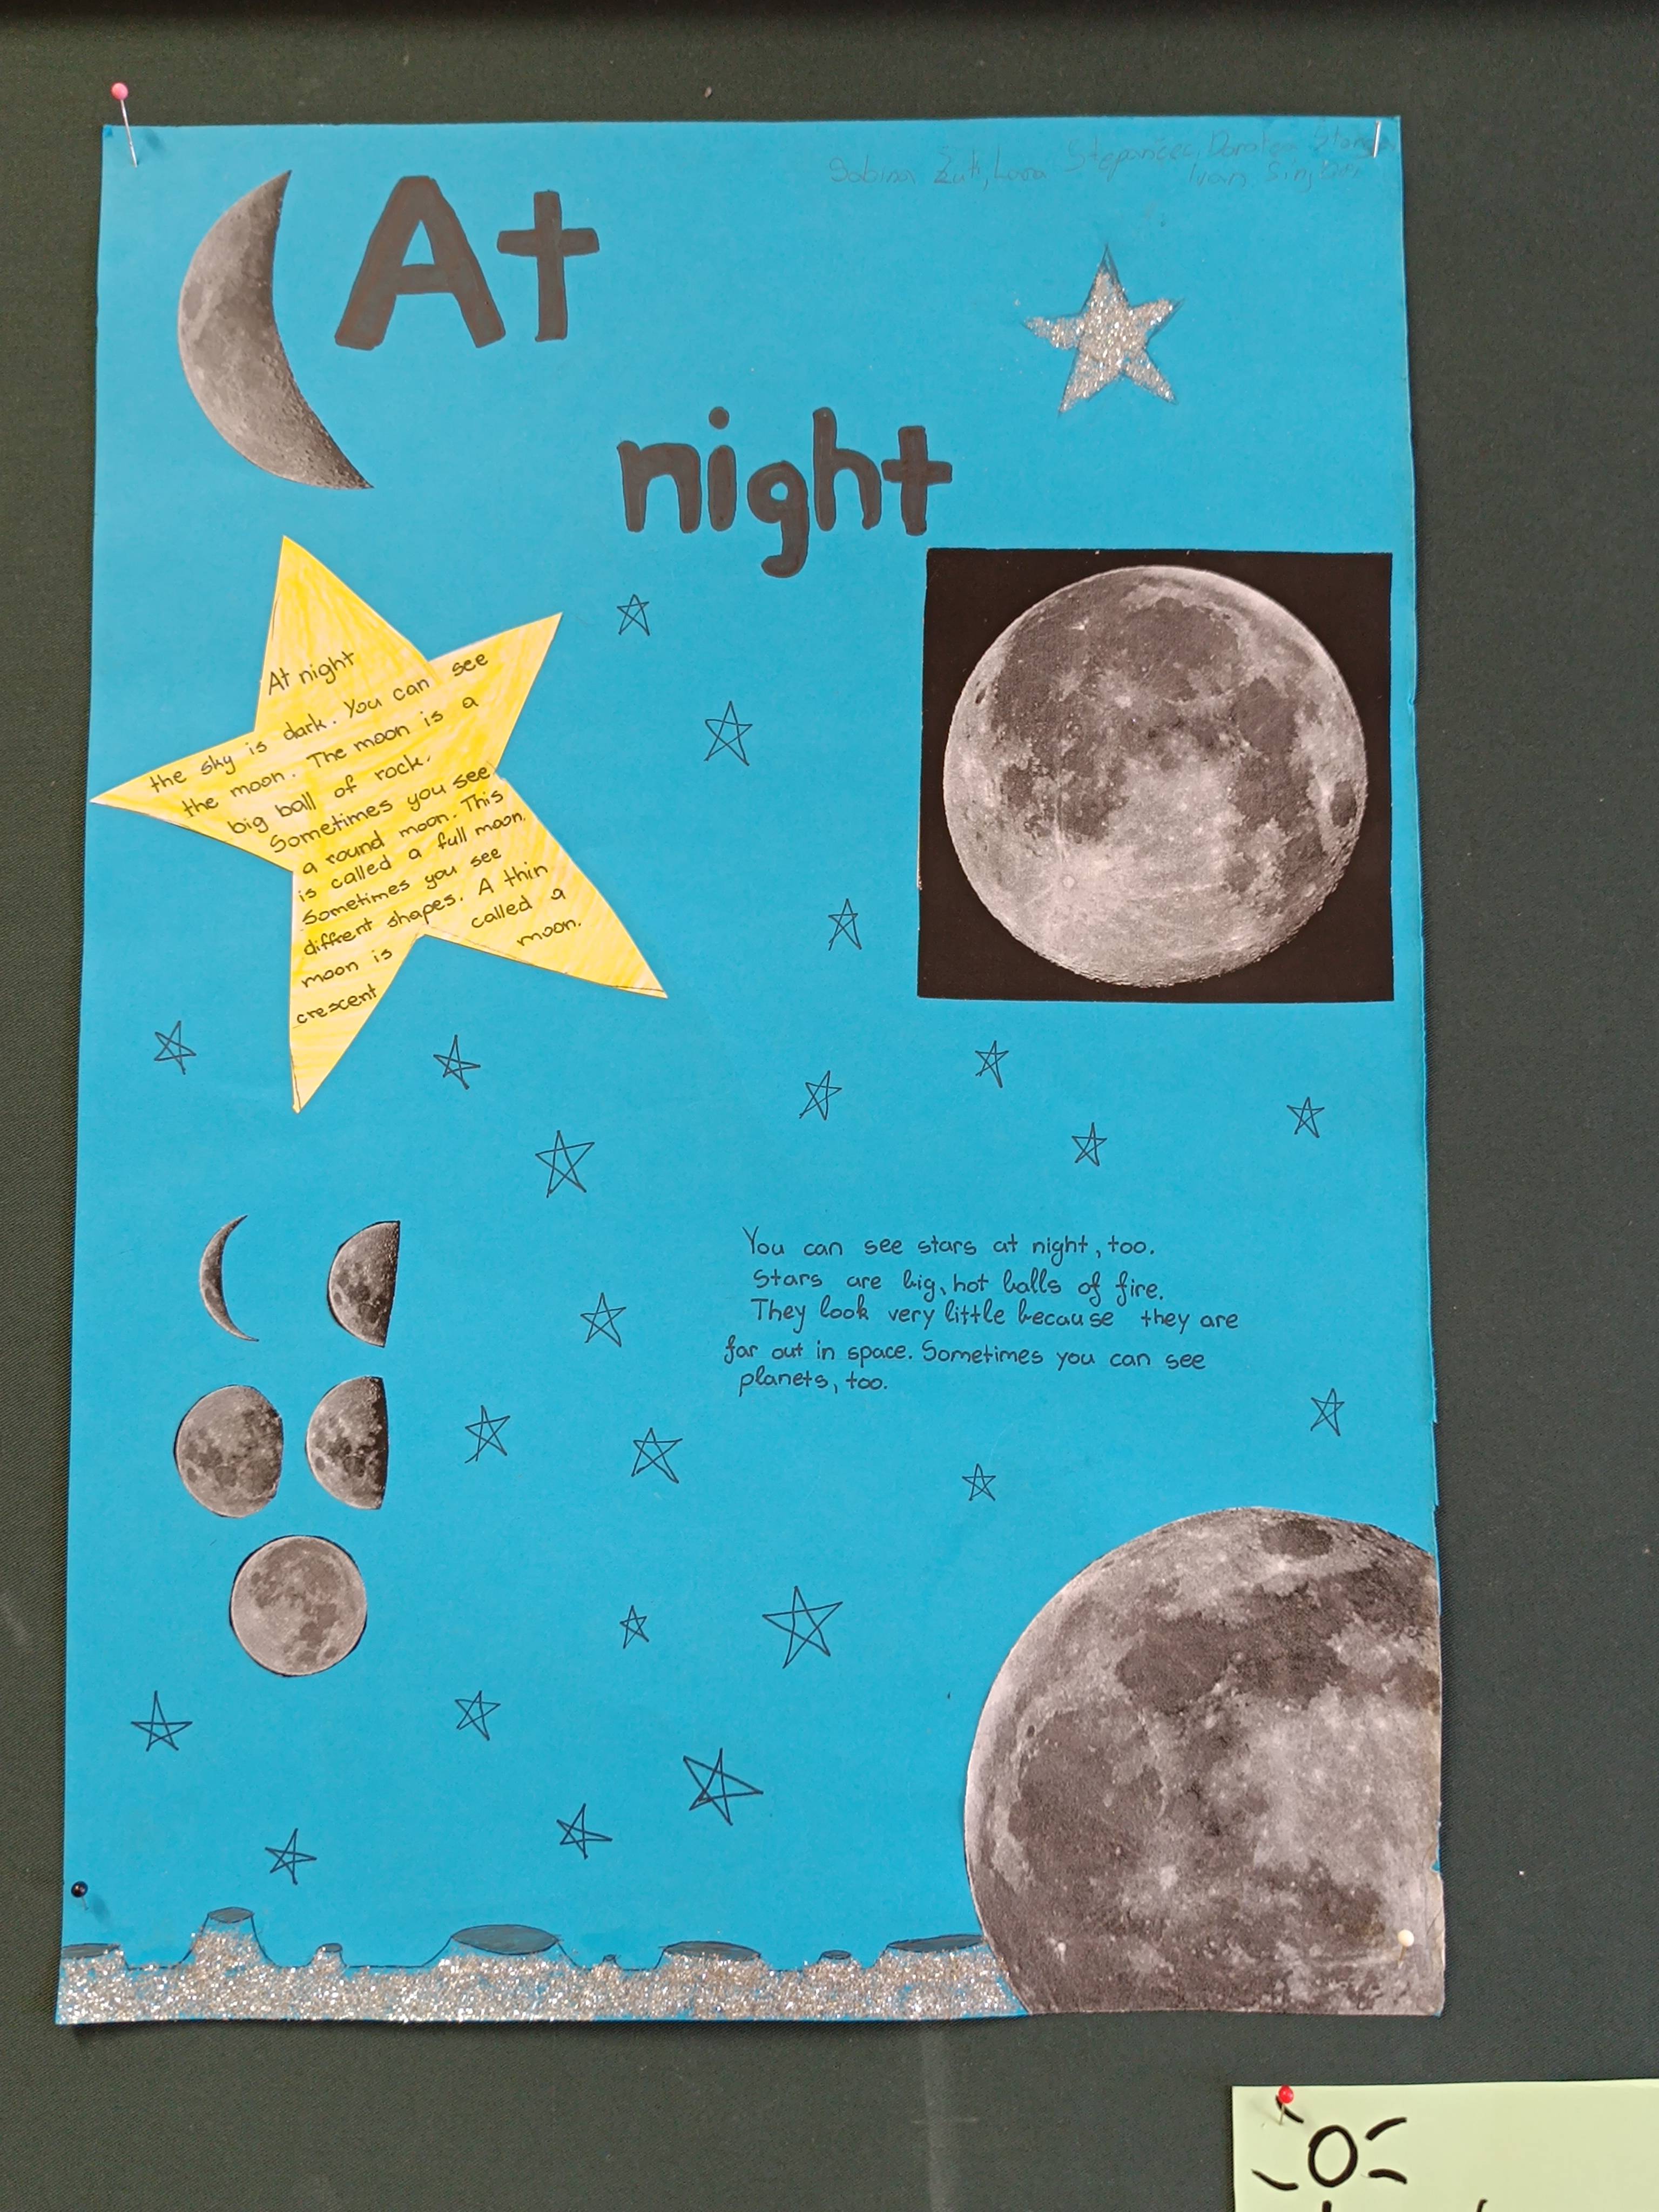 Sabina Žuti, Lana Stepanićec, Dorotea
Ivan
At
night
At night
the sky is dark. You can see
the moon. The moon is a
big ball of rock.
Sometimes you see
a round moon. This
is called a full moon.
Sometimes you see
diffrent shapes. A thin
moon is called a
crescent moon.
You can see stars at night, too.
Stars are big, hot balls of fire.
They look very little because they are
far out in space. Sometimes you can see
planets, too.